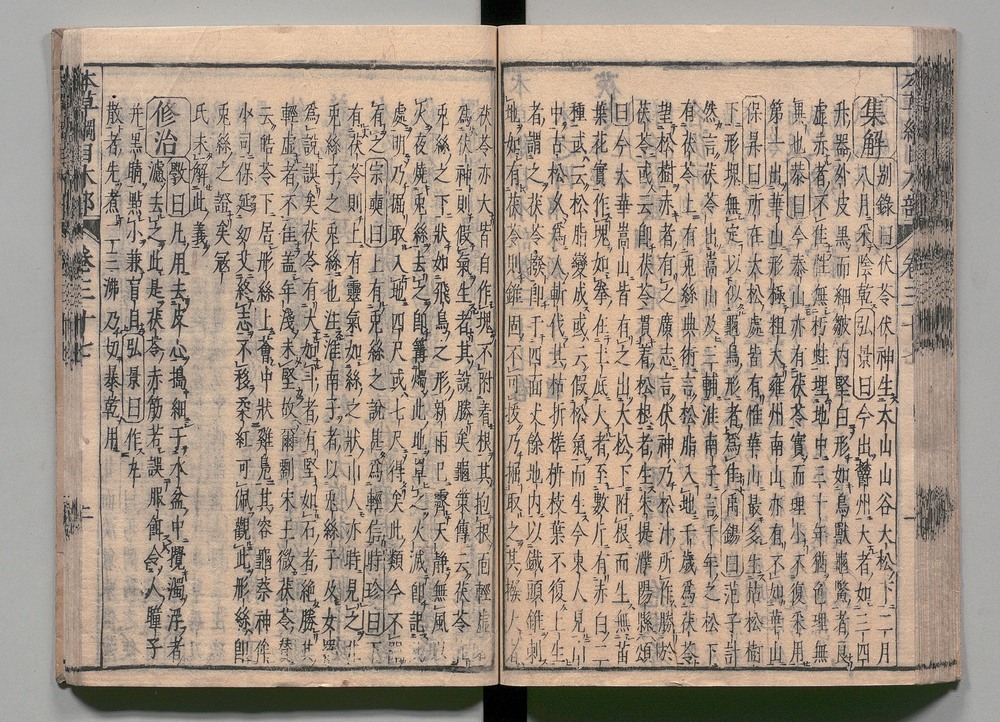 集解 別錄曰伏苓伏神生大山山谷大松下二月
八月采陰乾弘景曰今出鬱州大者如三四
升器外皮黑而細皺內堅白形如鳥獸龜鼈者良
虛赤者不佳性無朽蛀埋地中三十年猶色理無
異也恭曰今泰山亦有茯苓實而理小不復采用
第一出華山形極粗大雍州南山亦有不如華山
保昇曰所在大松處皆有惟華山最多生枯松樹
下形塊無定以似龜鳥形者爲佳禹錫曰范子計
然言茯苓出嵩山及三輔淮南子言千年之松下
有茯苓上有兎絲典術言松脂入地千歲爲茯苓
望松樹赤者下有之廣志言茯神乃松汁所作勝於
茯苓或云即茯苓貫着松根者生朱提濮陽縣頌
曰今太華嵩山皆有之出大松下附根而生無苗
葉花實作塊如拳在土底大者至數斤有赤白二
種或云松脂變成或云假松氣而生今東人見山
中古松久爲人斬伐其枯折槎枿枝葉不復上生
者謂之茯苓撥即于四面丈餘地內以鐵頭錐刺
地如有茯苓則錐固不可拔乃掘取之其撥大者
茯苓亦大皆自作塊不附着根其抱根而輕虛者
爲茯神則假氣生者其說勝矣龜筴傳云茯苓在
兎絲之下狀如飛鳥之形新雨已霽天静無風以
火夜燒兎絲去之即篝燭此地罩之火滅即記其
處明乃掘取入地四尺或七尺得矣此類今不聞
有之宗奭曰上有兎絲之說甚爲輕信時珍曰下
有茯苓則上有靈氣如絲之狀山人亦時見之非
兎絲子之兎絲也注淮南子者以兎絲子及女蘿
爲說誤矣茯苓有大如斗者有堅如石者絶勝其
輕虛者不佳蓋年淺未堅故爾劉宋王微茯苓贊
云皓苓下居彤絲上薈中狀雞鳧其容龜蔡神侔
少司保延幼艾終志不移柔紅可佩觀此彤絲即
兎絲之證矣寇
氏未解此義
修治 斅曰凡用去皮心搗細于水盆中攪濁浮者
濾去之此是茯苓赤筋若誤服餌令人瞳子
并黑睛點小兼盲目弘景曰作丸
散者先煮二三沸乃切暴乾用